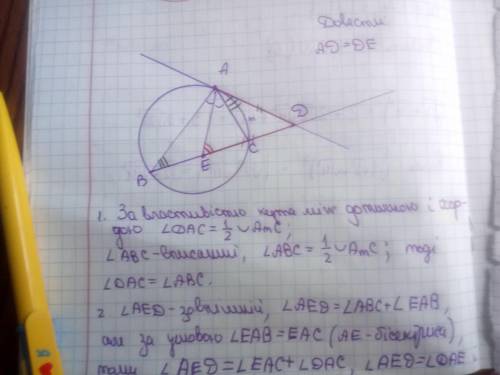 Довести
AD=DE
A
m
D
C
E
B
1. За властивістю кута між дотичною і хор-
дою ∠DAC=½∪AmC;
∠ABC-вписаний, ∠ABC=½∪AmC; тоді
∠DAC=∠ABC.
2. ∠AED-зовнішній, ∠AED=∠ABC+∠EAB,
але за умовою ∠EAB=EAC (AE-бісектриса),
тому ∠AED=∠EAC+∠DAC, ∠AED=∠DAE.